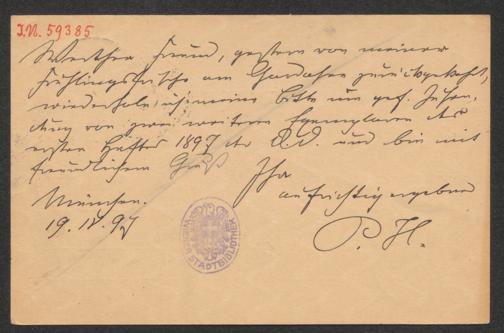 I.N. 59385
Werther Freund, gestern von meiner
Frühlingsfrische am Gardasee zurückgekehrt,
wiederhole ich meine Bitte um gef. Zusen-
dung von zwei weitern Exemplaren des
ersten Heftes 1897 der D.D. und bin mit
freundlichem Gruß
Ihr
aufrichtig ergebner
München.
19. IV. 97
P. H.
STADTBIBLIOTHEK